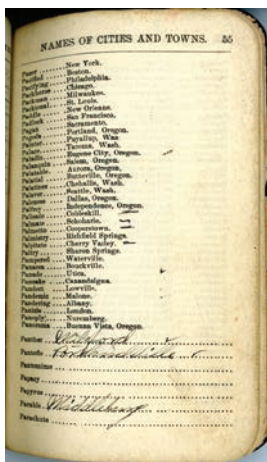 NAMES OF CITIES AND TOWNS. 55
Pacer New York.
Pacified Boston.
Pacifying Philadelphia.
Packhorse Chicago.
Packman Milwaukee.
St. Louis.
Paddle New Orleans.
Padlock San Francisco.
Pagan Sacramento.
Portland, Oregon.
Painter Puyallup, Was
Tacoma, Wash.
Paladin Eugene City, Oregon.
Palanquin Salem, Oregon.
Palatable Aurora, Oregon.
Palatial Butteville, Oregon.
Palatines Chehalis, Wash.
Palaver Seattle, Wash.
Paleness Dallas, Oregon.
Palfrey Independence, Oregon.
Palisade Cobleskill.
Palmate Schoharie.
Palmetto Cooperstown.
Palmistry Richfield Springs.
Palpitate Cherry Valley.
Paltry Sharon Springs.
Pampered Waterville.
Panacea Bouckville.
Panado Utica.
Pancake Canandaigua.
Pandect Lowville.
Pandemic Malone.
Pandering Albany.
Panicle London.
Panoply Nuremberg.
Panorama Buena Vista, Oregon.
Panther
Pantofle
Pantomime
Papacy
Papyrus
Parable Middleburgh
Parachute